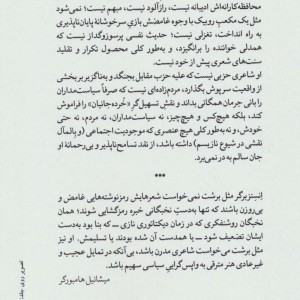 محافظه‌کارانه‌اش ادیبانه نیست، رازآلود نیست، مبهم نیست؛ نمی‌شود
مثل یک مکعب روبیک با وجوه غامضش بازیِ سرخوشانهٔ پایان‌ناپذیری
به راه انداخت، تغزلی نیست؛ حدیث نفسی پرسوزوگداز نیست که
همدلی خواننده را برانگیزد، و به‌طور کلی محصول تکرار و تقلید
سنت‌های شعری پیش از خود نیست.
او شاعری حزبی نیست که علیه حزب مقابل بجنگد و به‌ناگزیر بر بخشی
از واقعیت سرپوش بگذارد، مردم‌زاده‌ای نیست که صرفاً سیاست‌مداران
را بانی جرمان همگانی بداند و نقش تسهیل‌گرِ «خُرده‌جانیان» را فراموش
کند، بلکه هیچ‌کس و هیچ‌چیز، نه سیاست‌مداران، نه مردم، نه حتی
خودش، و نه به‌طور کلی هیچ عنصری که موجودیت اجتماعی (و بالمآل
نقشی در شیوع نازیسم) داشته باشد، از نقد تسامح‌ناپذیر و بی‌رحمانهٔ او
جان سالم به در نمی‌برد.
***
انسنزبرگر مثل برشت نمی‌خواست شعرهایش رمزنوشته‌هایی غامض و
بی‌روزن باشند که تنها به‌دستِ نخبگانی خبره رمزگشایی شوند؛ همان
نخبگان روشنفکری که در زمان دیکتاتوری نازی ــ که بنا بود به‌دست
ایشان تضعیف شود ــ با همدست آن شده بودند یا تسلیمش. او نیز
مثل برشت می‌خواست شاعری مدرن باشد، بی‌آنکه در تمایل عجیب و
غیرعادی هنر مترقی به واپس‌گرایی سیاسی سهیم باشد.
میشائیل هامبورگر
تصویر روی جلد: